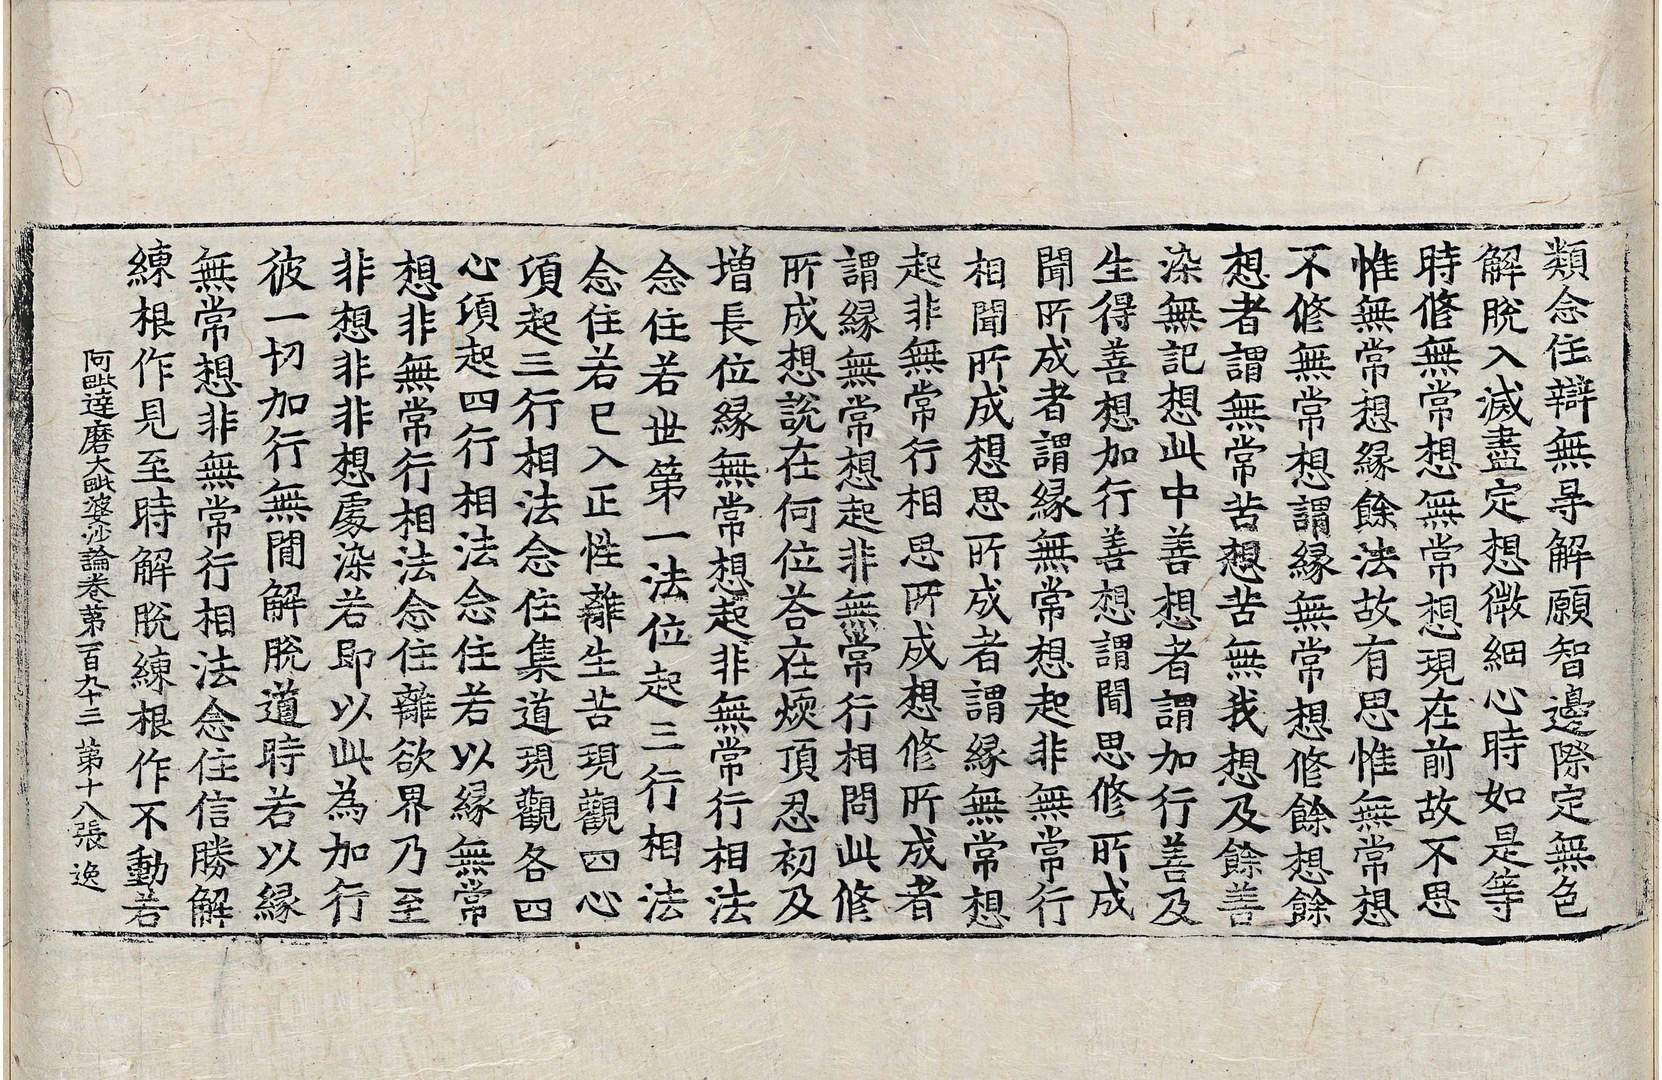 類念住辯無㝵解願智邊際定無色
解脫入滅盡定想微細心時如是等
時修無常想無常想現在前故不思
惟無常想緣餘法故有思惟無常想
不修無常想謂緣無常想修餘想餘
想者謂無常苦想苦無我想及餘善
染無記想此中善想者謂加行善及
生得善想加行善想謂聞思修所成
聞所成者謂緣無常想起非無常行
相聞所成想思所成者謂緣無常想
起非無常行相思所成想修所成者
謂緣無常想起非無常行相問此修
所成想說在何位荅在煗頂忍初及
增長位緣無常想起非無常行相法
念住若世第一法位起三行相法
念住若已入正性離生苦現觀四心
頃起三行相法念住集道現觀各四
心頃起四行相法念住若以緣無常
想非無常行相法念住離欲界乃至
非想非非想處染若即以此為加行
彼一切加行無閒解脫道時若以緣
無常想非無常行相法念住信勝解
練根作見至時解脫練根作不動若
阿毗達磨大毗婆沙論卷第一百九十三 第十八張 逸